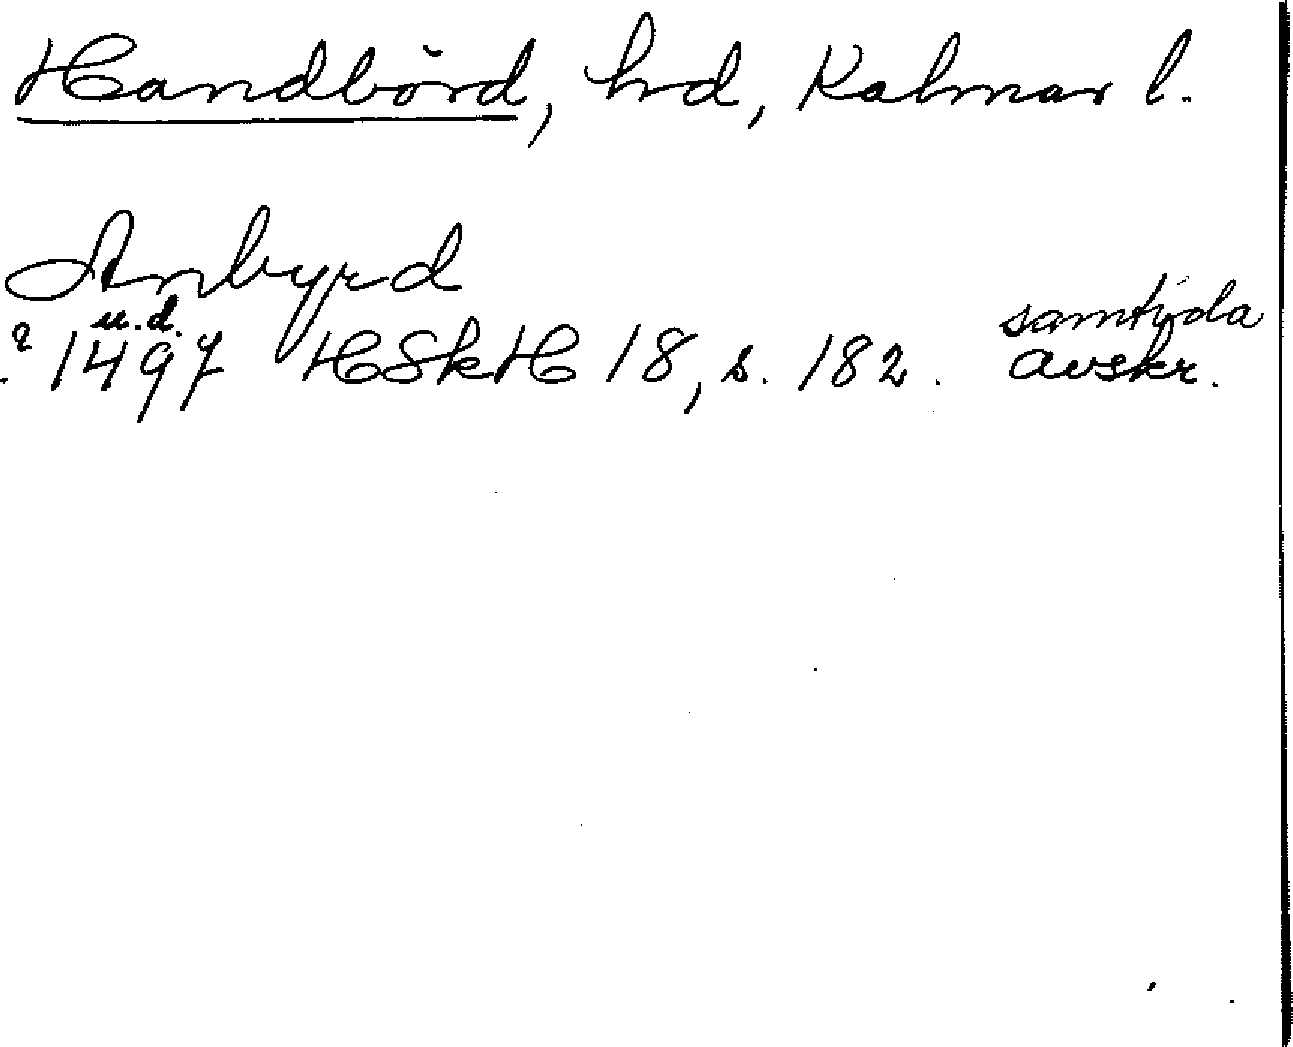 Handbörd, hd, Kalmar l.
Anbyrd
u.d. samtida
? 1497 HSkH 18, s. 182. avskr.